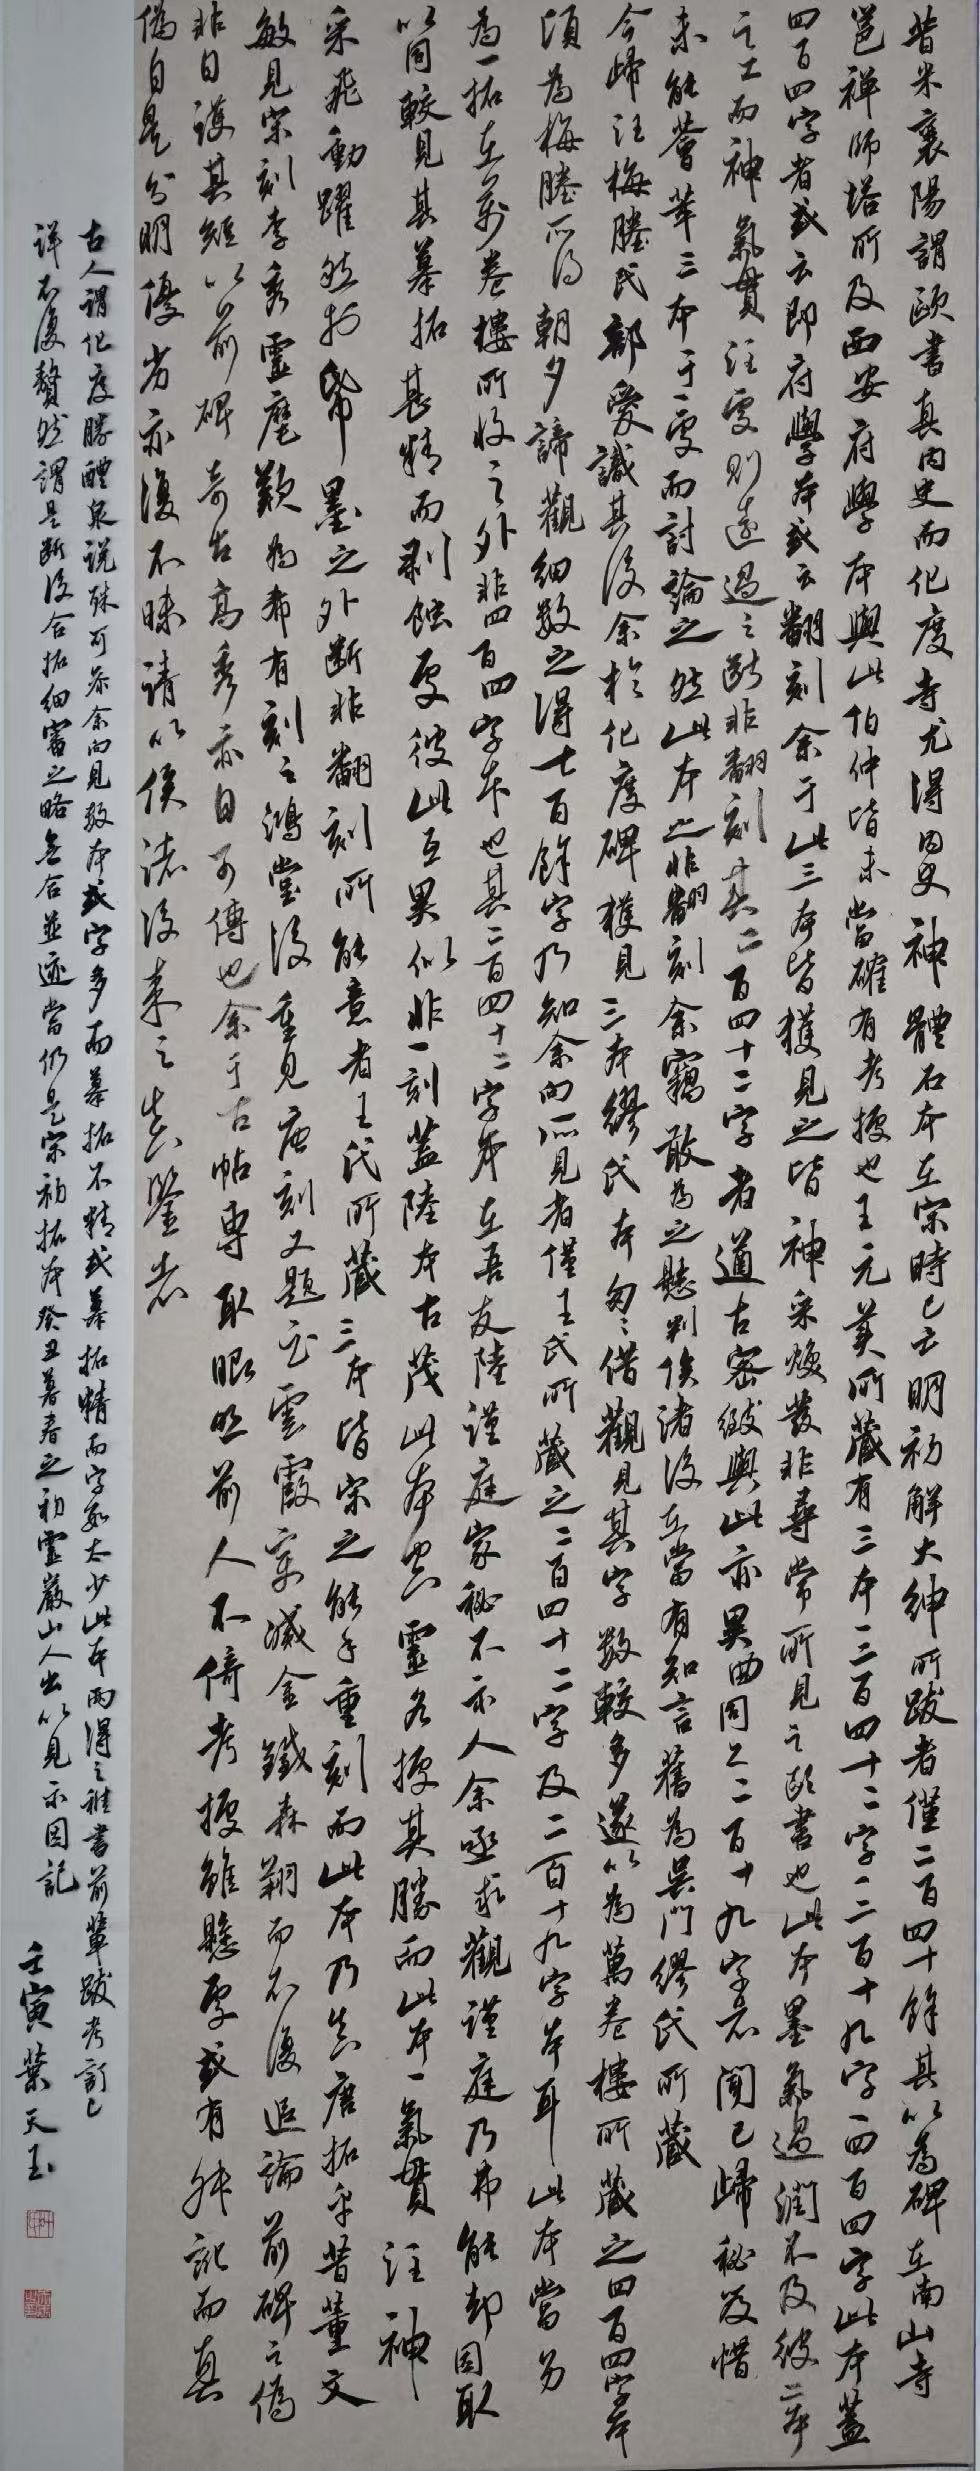 昔米襄陽謂歐書真內史而化度寺尤得內史神體石本在宋時已亡明初解大紳所跋者僅二百四十餘其以為碑在南山寺
邕禪師塔所及西安府學本與此伯仲皆未當確有考據也王元美所藏有三本一三百四十二字一二百十九字一四百四字此本蓋
四百四字者或云即府學本或云翻刻余于此三本皆獲見之皆神采煥發非尋常所見之歐書也此本墨氣過潤不及彼二本
之工而神氣貫注處則遠過之斷非翻刻其二百四十二字者遒古密緻與此亦異曲同工二百十九字者聞已歸秘笈惜
未能薈萃三本于一處而討論之然此本之非翻刻余竊敢為之懸判俟諸後立當有知言舊為吳門繆氏所藏
今歸汪梅塍氏部愛識其後余於化度碑獲見三本繆氏本匆匆借觀見其字數較多遂以為萬卷樓所藏之四百四字本
須為梅塍所得朝夕諦觀細數之得七百餘字乃知余向所見者僅王氏所藏之二百四十二字及二百十九字本耳此本當另
為一拓在萬卷樓所收之外非四百四字本也其二百四十二字本在吾友陸謹庭家秘不示人余亟求觀謹庭乃弗能却因取
以同較見其摹拓甚精而剥蝕處彼此互異似非一刻蓋陸本古茂此本空靈各擅其勝而此本一氣貫注神
采飛動躍然於帋墨之外斷非翻刻所能意者王氏所藏三本皆宋之能手重刻而此本乃真唐拓乎昔董文
敏見宋刻李秀靈麾歎為希有刻之鴻堂後重見唐刻又題云雲霞寥滅金鐵森翔而不復追論前碑之僞
非自護其短以前碑奇古高秀亦自可傳也余于古帖專取眼照前人不倚考據雖懸處或有舛訛而真
僞自是分明優劣亦復不昧請以俟諸後來之真鑒者
古人謂化度勝醴泉說殊可忝余向見數本或字多而摹拓不精或摹拓精而字每太少此本兩得之雅書前輩跋考訂已
詳不復贅然謂是斷後合拓細審之略無合並迹當仍是宋初拓本癸丑暮春之初靈巖山人出以見示因記
壬寅葉天玉